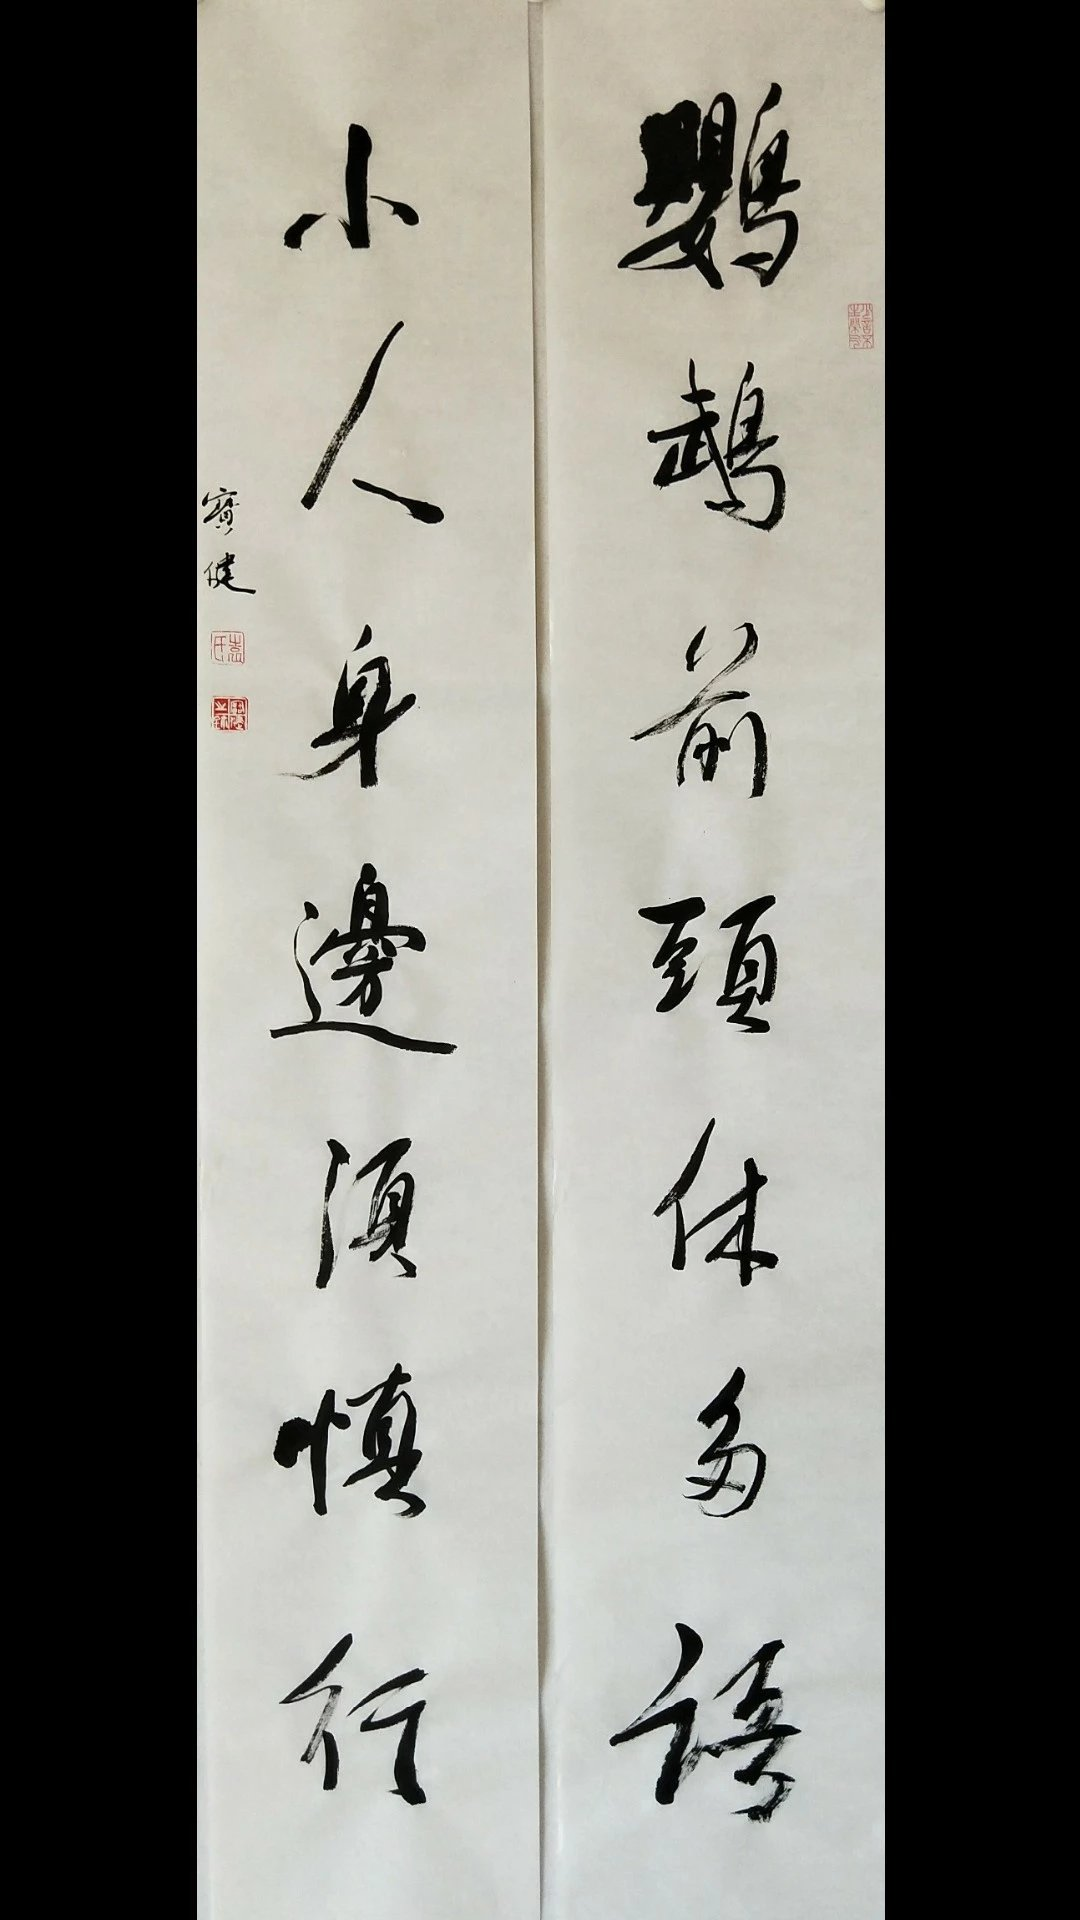 鸚鵡前頭休多語
小人身邊須慎行
寶健